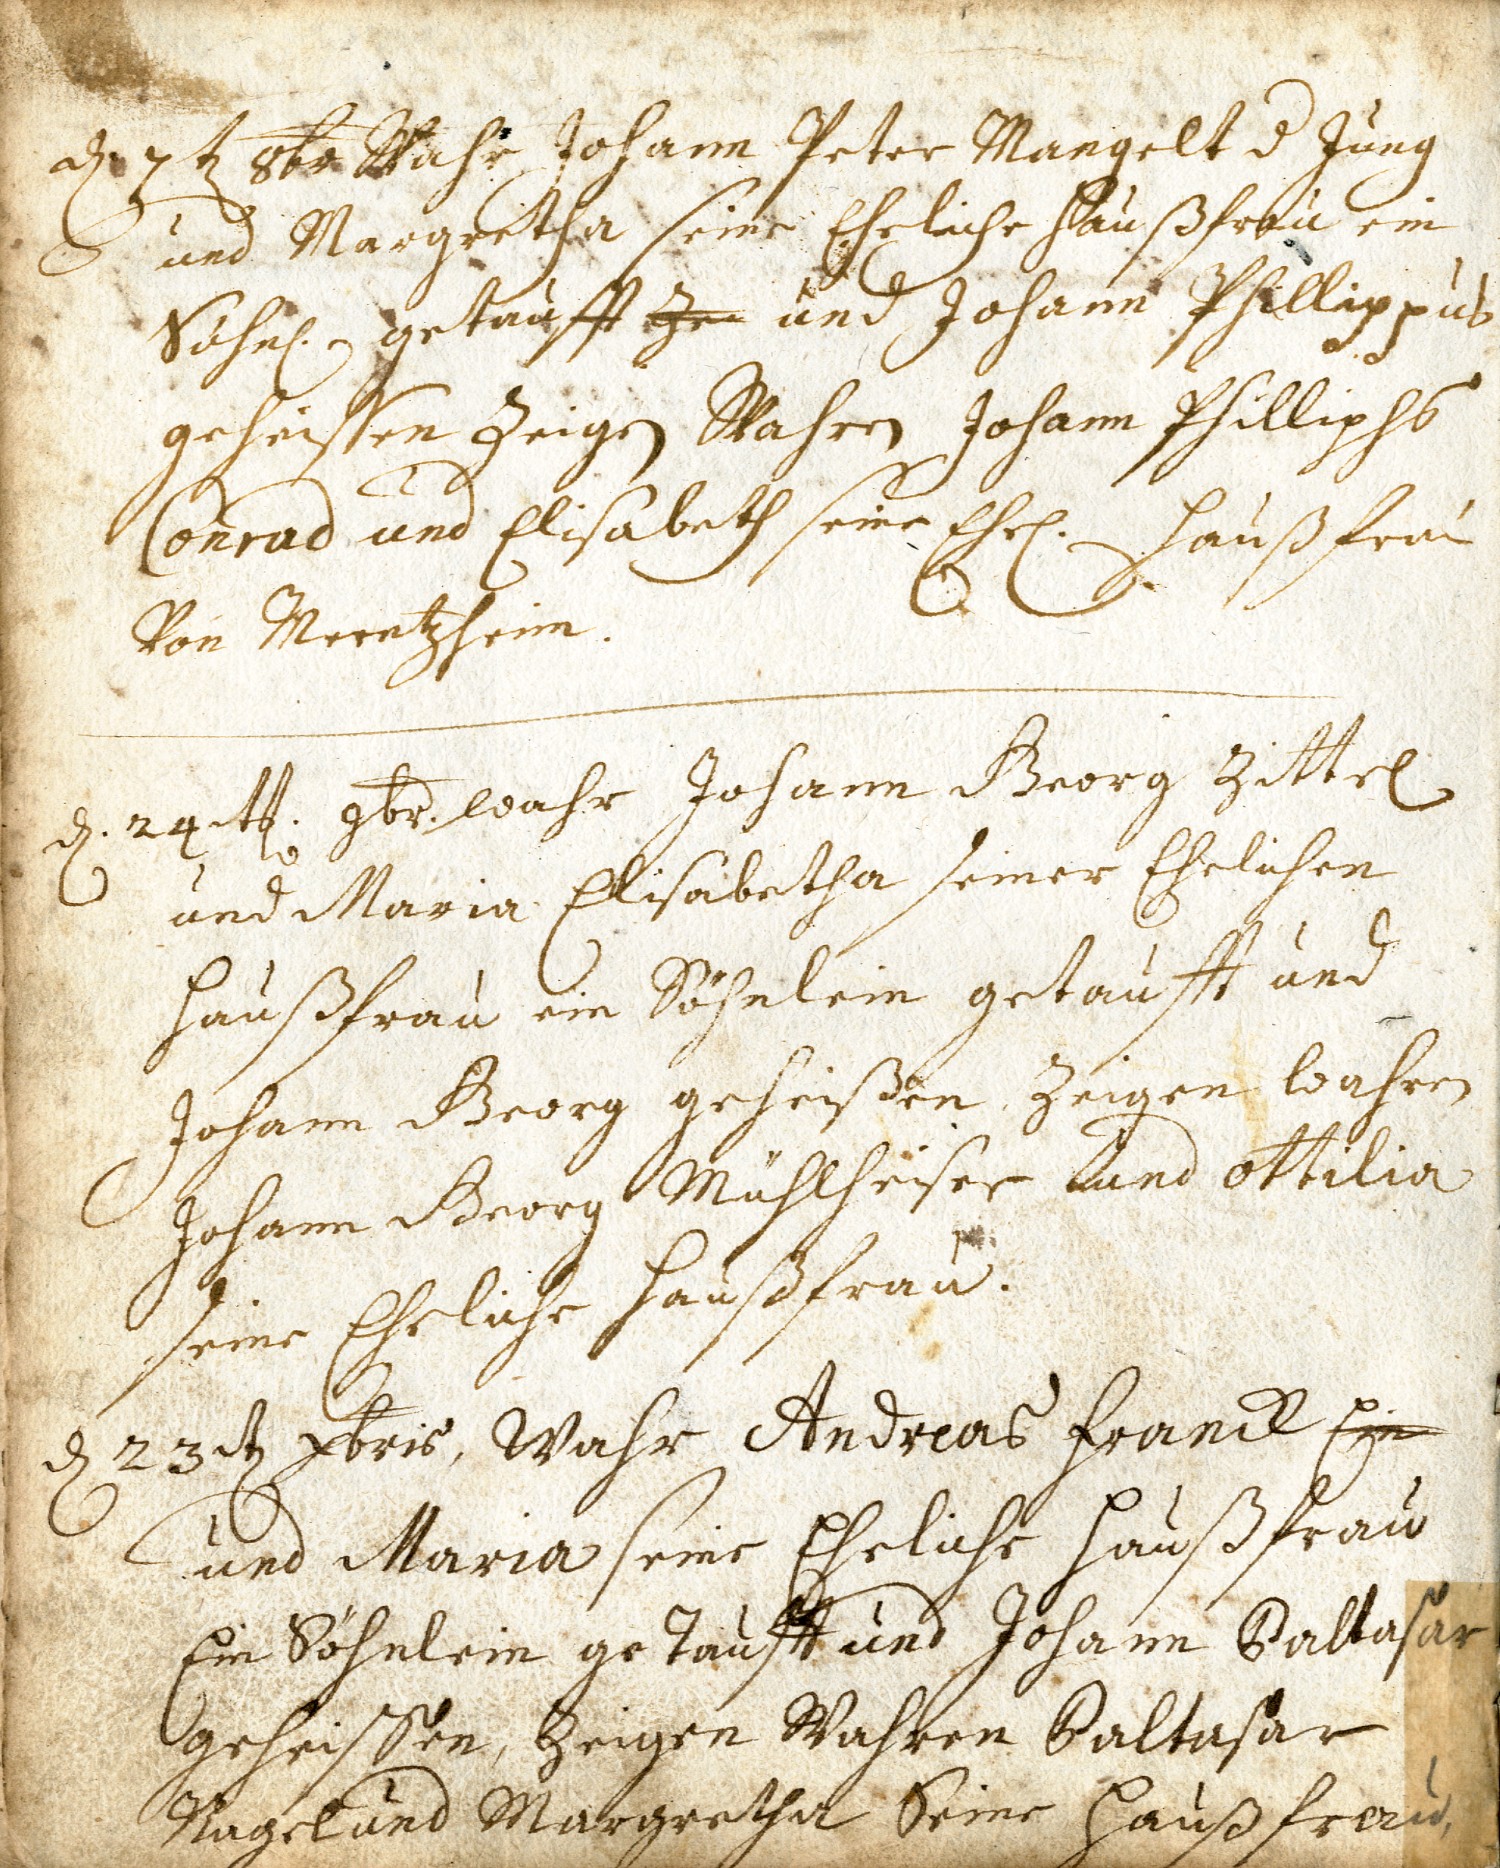 d. 7t 8br Wahr Johann Peter Mangelt d Jung
und Margretha seine Eheliche haußfrau ein
Söhnl. getaufft und Johann Phillippus
geheissen Zeigen Wahren Johann Phillips
Conrad und Elisabeth seine Ehel. haußfrau
Von Merntzheim.
d. 24ten. 9br. wahr Johann Georg Zittel
und Maria Elisabetha seiner Ehelichen
haußfrau ein Söhnlein getaufft und
Johann Georg geheißen, Zeigen wahren
Johann Georg Mühlheiser und ottilia
seine Eheliche haußfrau.
d 23ten xbris, Wahr Andreas Franck Ein
und Maria seine Eheliche haußfrau
Ein Söhnlein getaufft und Johann Baltasar
geheissen, Zeigen Wahren Baltasar
Nagel und Margretha Seine haußfrau,